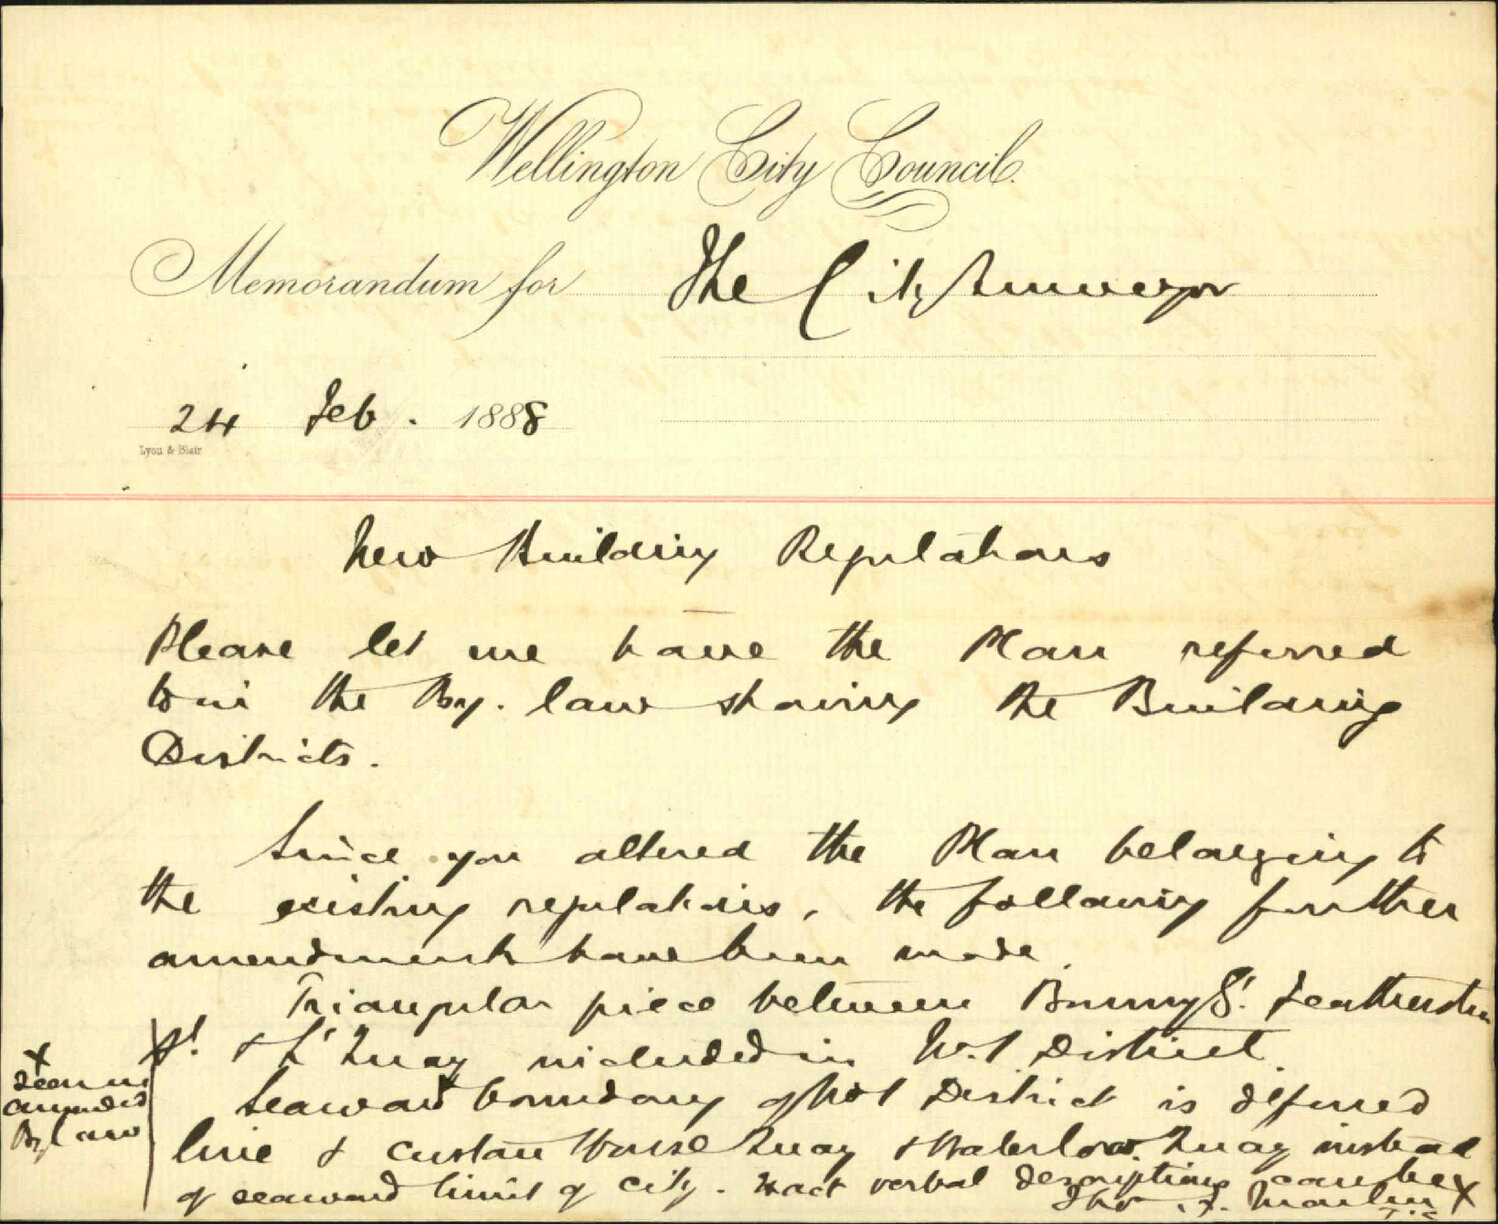 Wellington City Council.
Memorandum for The City Surveyor
24 Feb. 1888
Lyon & Blair
New Building Regulations
Please let me have the Plan referred
to in the By-law showing the Building
Districts.
Since you altered the Plan belonging to
the existing regulations, the following further
amendments have been made.
Triangular piece between Bunny St. Featherston
St. & L. Quay included in No. 1 District.
Seaward boundary of No 1 District is defined
line of Custom House Quay & Waterloo Quay instead
of seaward limit of city. Exact verbal description can be X
X
seen in
amended
Bylaw
Tho. F. Martin
T.C.